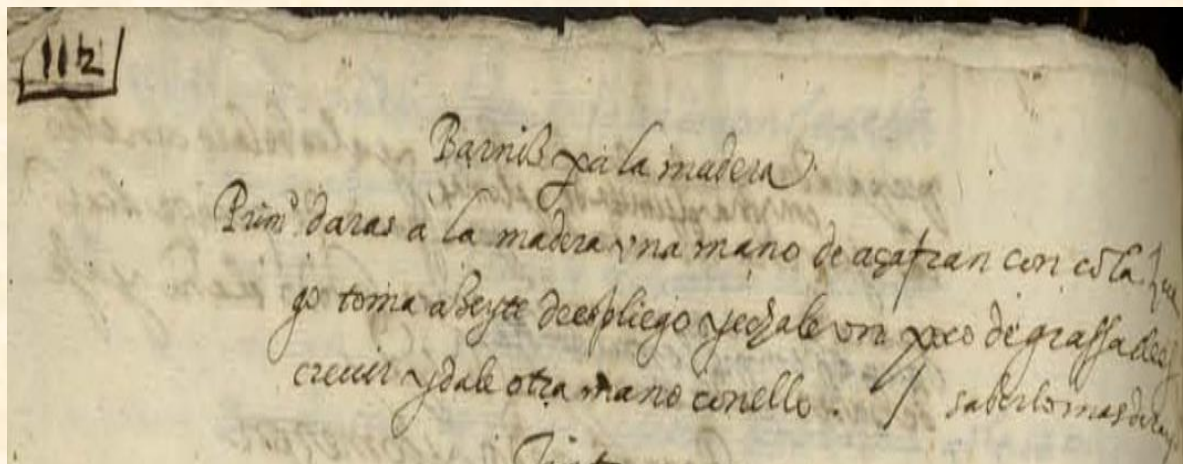 112
Barniz pa la madera
Primo daras a la madera vna mano de açafran con cola. lue
go toma aZeyte de espliego y echale vn poco de grassa de es
creuir y dale otra mano con ello. / saberlo mas de